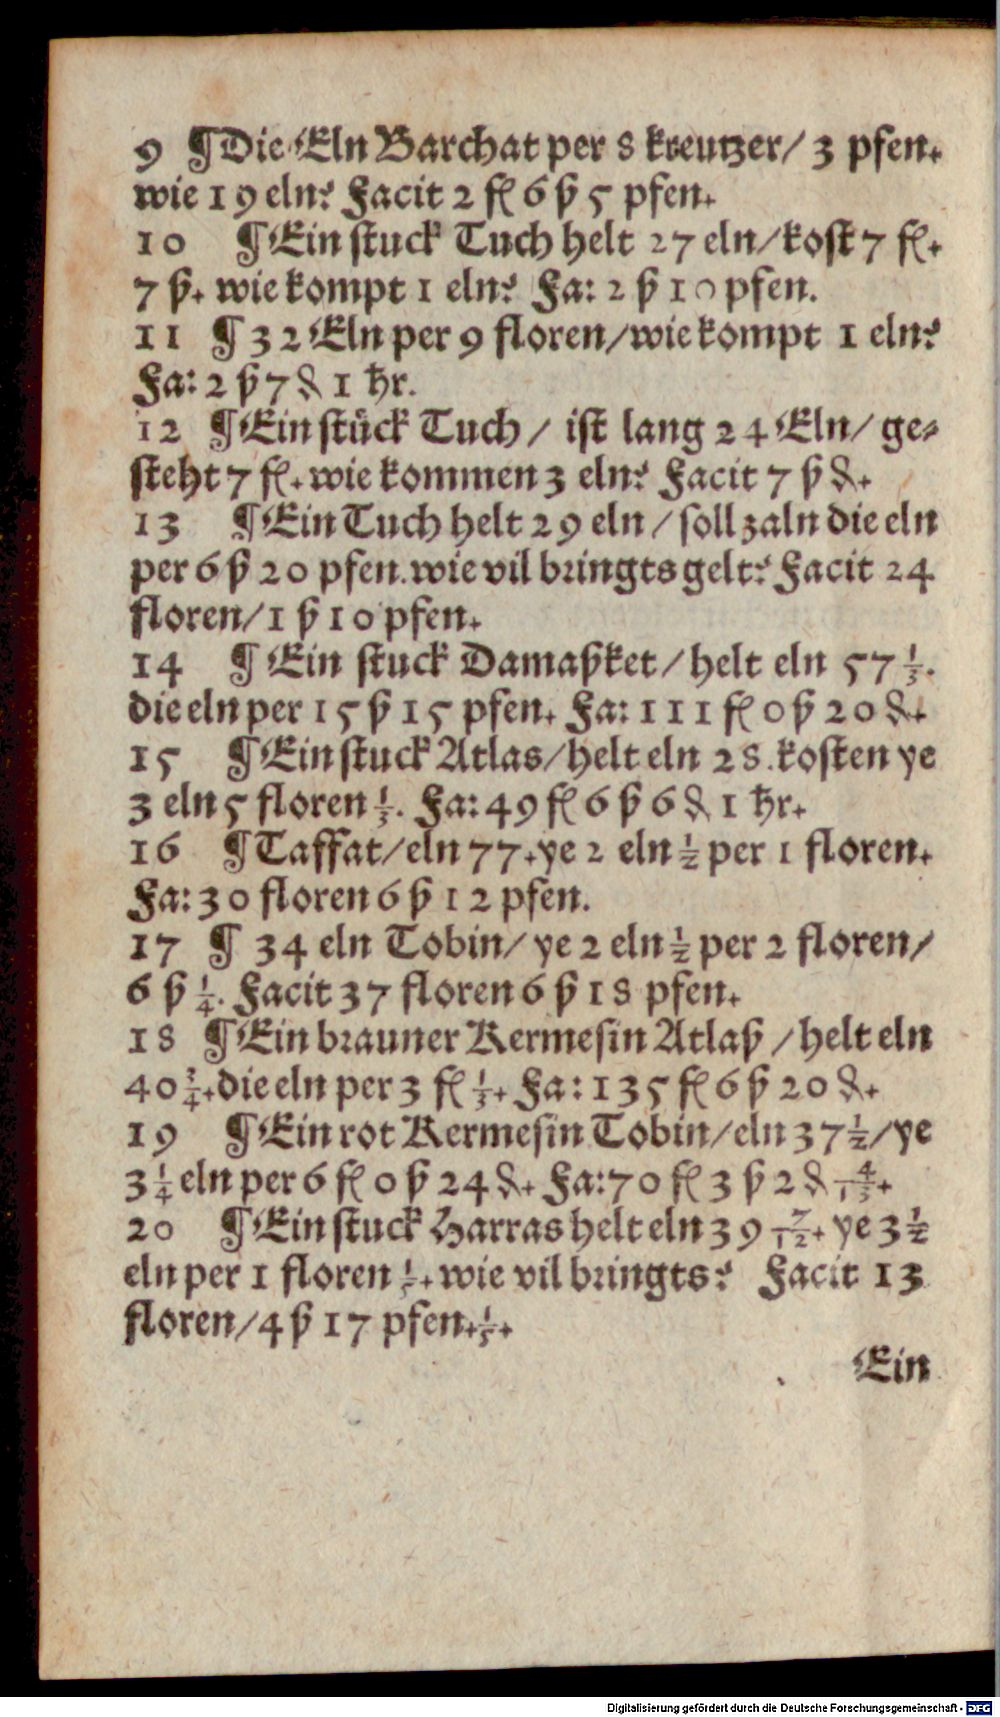 9 ¶ Die Eln Barchat per 8 kreutzer/ 3 pfen.
wie 19 eln? Facit 2 fl 6 ß 5 pfen.
10 ¶ Ein stuck Tuch helt 27 eln/ kost 7 fl.
7 ß. wie kompt 1 eln? Fa: 2 ß 10 pfen.
11 ¶ 32 Eln per 9 floren/ wie kompt 1 eln?
Fa: 2 ß 7 ₰ 1 hr.
12 ¶ Ein stuͤck Tuch/ ist lang 24 Eln/ ge⸗
steht 7 fl. wie kommen 3 eln? Facit 7 ß ₰.
13 ¶ Ein Tuch helt 29 eln/ soll zaln die eln
per 6 ß 20 pfen. wie vil bringts gelt? Facit 24
floren/ 1 ß 10 pfen.
14 ¶ Ein stuck Damaßket/ helt eln 57 1/3.
die eln per 15 ß 15 pfen. Fa: 111 fl 0 ß 20 ₰.
15 ¶ Ein stuck Atlas/ helt eln 28. kosten ye
3 eln 5 floren 1/3. Fa: 49 fl 6 ß 6 ₰ 1 hr.
16 ¶ Taffat/ eln 77. ye 2 eln 1/2 per 1 floren.
Fa: 30 floren 6 ß 12 pfen.
17 ¶ 34 eln Tobin/ ye 2 eln 1/2 per 2 floren/
6 ß 1/4. Facit 37 floren 6 ß 18 pfen.
18 ¶ Ein brauner Kermesin Atlaß/ helt eln
40 3/4. die eln per 3 fl 1/3. Fa: 135 fl 6 ß 20 ₰.
19 ¶ Ein rot Kermesin Tobin/ eln 37 1/2/ ye
3 1/4 eln per 6 fl 0 ß 24 ₰. Fa: 70 fl 3 ß 2 ₰ 4/13.
20 ¶ Ein stuck Harras helt eln 39 7/12. ye 3 1/2
eln per 1 floren wie vil bringts? Facit 13
floren/ 4 ß 17 pfen. 1/5.
Ein
Digitalisierung gefördert durch die Deutsche Forschungsgemeinschaft - DFG